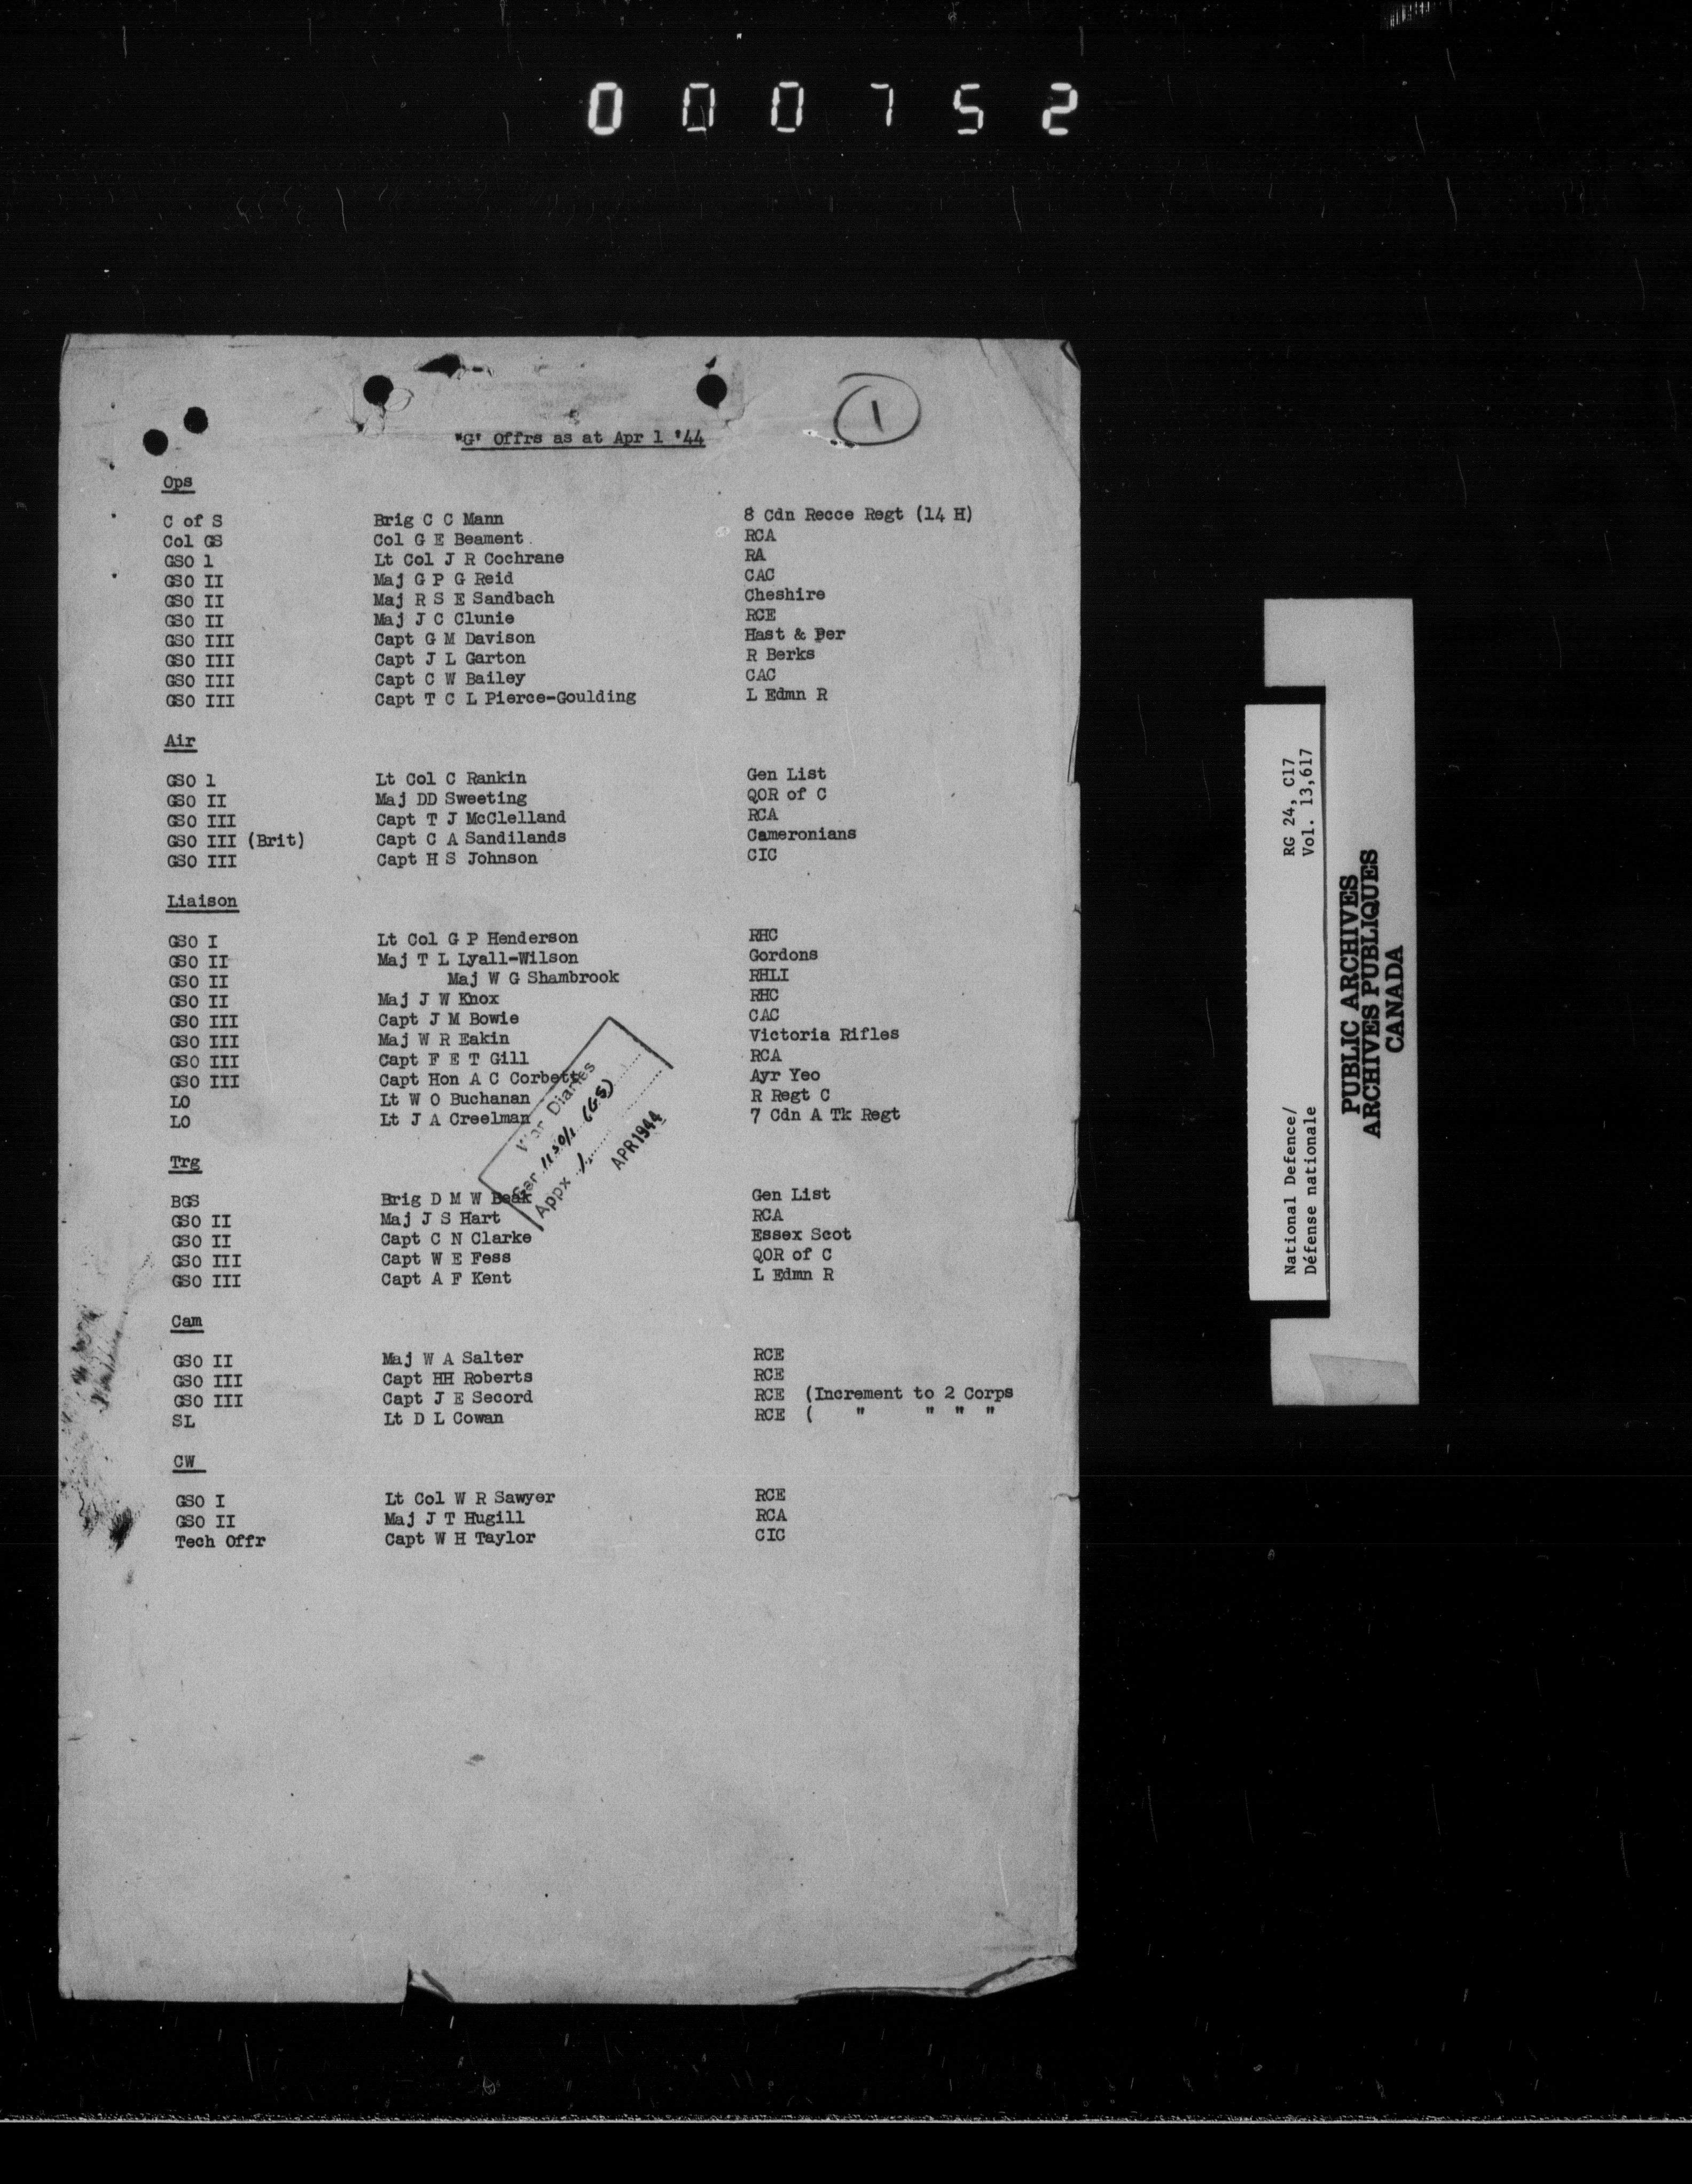 000752
1
"G" Offrs as at Apr 1 '44
Ops
C of S Brig C C Mann 8 Cdn Recce Regt (14 H)
Col GS Col G E Beament RCA
GSO 1 Lt Col J R Cochrane RA
GSO II Maj G P G Reid CAC
GSO II Maj R S E Sandbach Cheshire
GSO II Maj J C Clunie RCE
GSO III Capt G M Davison Hast & Per
GSO III Capt J L Garton R Berks
GSO III Capt C W Bailey CAC
GSO III Capt T C L Pierce-Goulding L Edmn R
Air
GSO 1 Lt Col C Rankin Gen List
GSO II Maj DD Sweeting QOR of C
GSO III Capt T J McClelland RCA
GSO III (Brit) Capt C A Sandilands Cameronians
GSO III Capt H S Johnson CIC
Liaison
GSO I Lt Col G P Henderson RHC
GSO II Maj T L Lyall-Wilson Gordons
GSO II Maj W G Shambrook RHLI
GSO II Maj J W Knox RHC
GSO III Capt J M Bowie CAC
GSO III Maj W R Eakin Victoria Rifles
GSO III Capt F E T Gill RCA
GSO III Capt Hon A C Corbett Ayr Yeo
LO Lt W O Buchanan R Regt C
LO Lt J A Creelman 7 Cdn A Tk Regt
War Diaries
Ser (GS)
Appx 1
APR 1944
Trg
BGS Brig D M W Beak Gen List
GSO II Maj J S Hart RCA
GSO II Capt C N Clarke Essex Scot
GSO III Capt W E Fess QOR of C
GSO III Capt A F Kent L Edmn R
Cam
GSO II Maj W A Salter RCE
GSO III Capt HH Roberts RCE
GSO III Capt J E Secord RCE (Increment to 2 Corps
SL Lt D L Cowan RCE ( " " " "
CW
GSO I Lt Col W R Sawyer RCE
GSO II Maj J T Hugill RCA
Tech Offr Capt W H Taylor CIC
National Defence/ RG 24, C17
Défense nationale Vol. 13,617
PUBLIC ARCHIVES
ARCHIVES PUBLIQUES
CANADA